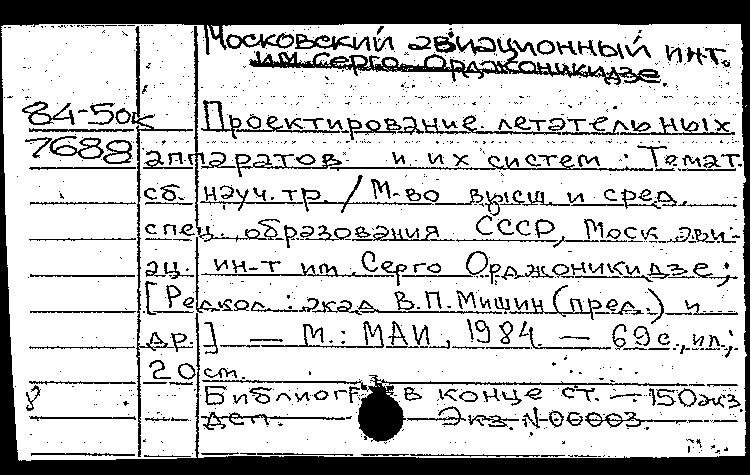 Московский авиационный инт.
им. Серго Орджоникидзе.
84-50к Проектирование летательных
7688 аппаратов и их систем : Темат.
сб. науч. тр. / М-во высш. и сред.
спец. образования СССР, Моск. ави-
ац. ин-т им. Серго Орджоникидзе;
[Редкол.: акад В.П.Мишин (пред.) и
др.] — М.: МАИ, 1984. — 69 с., ил.;
20 см.
8 Библиогр в конце ст. — 150 экз
деп. Экз. N 00003.